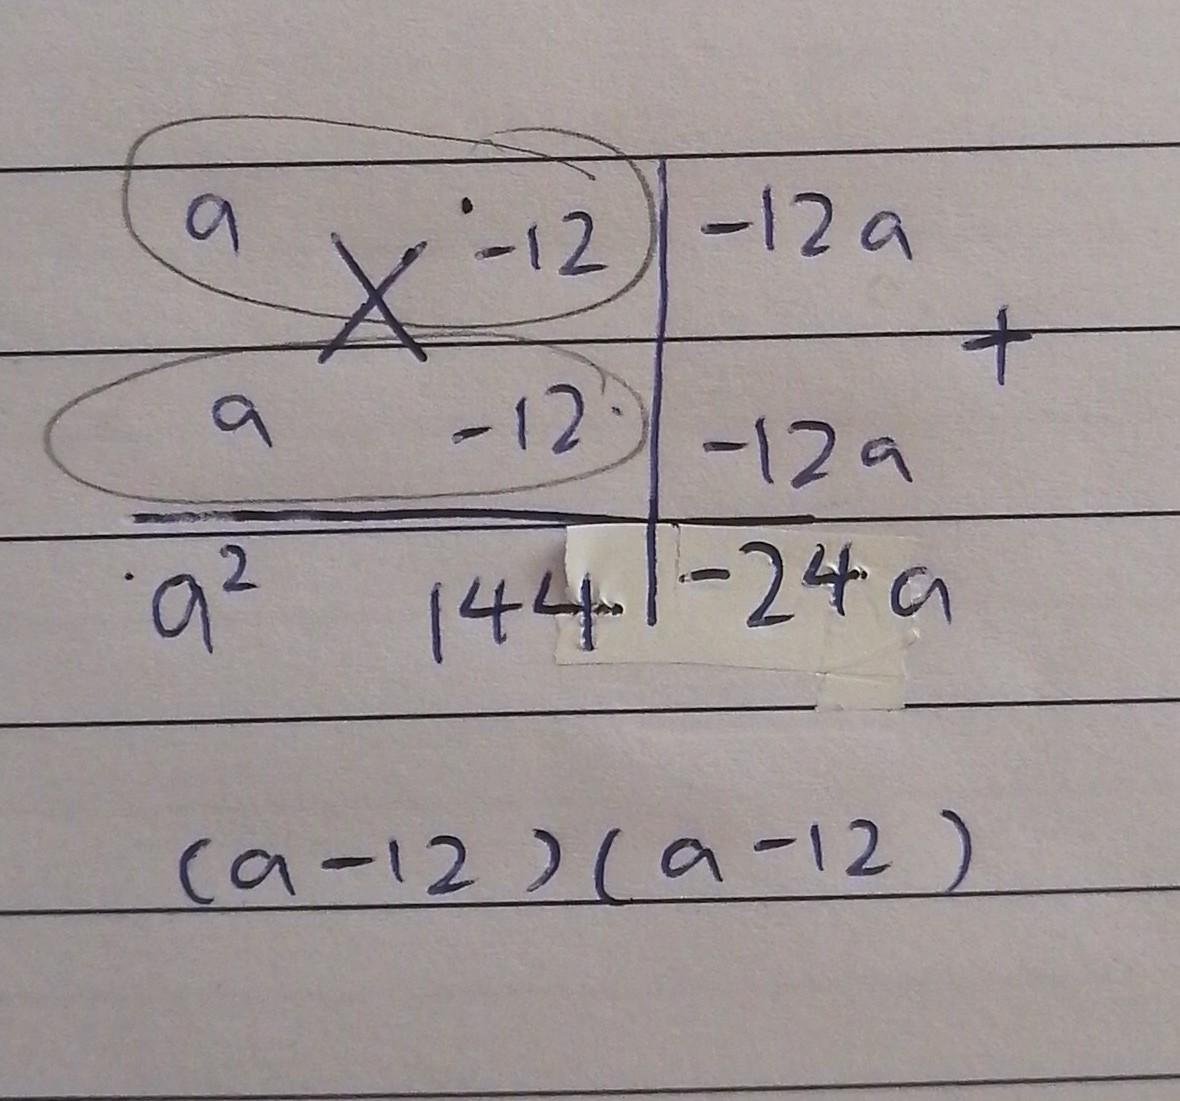 a -12 | -12a
X +
a -12 | -12a
a² 144 | -24a
(a-12)(a-12)